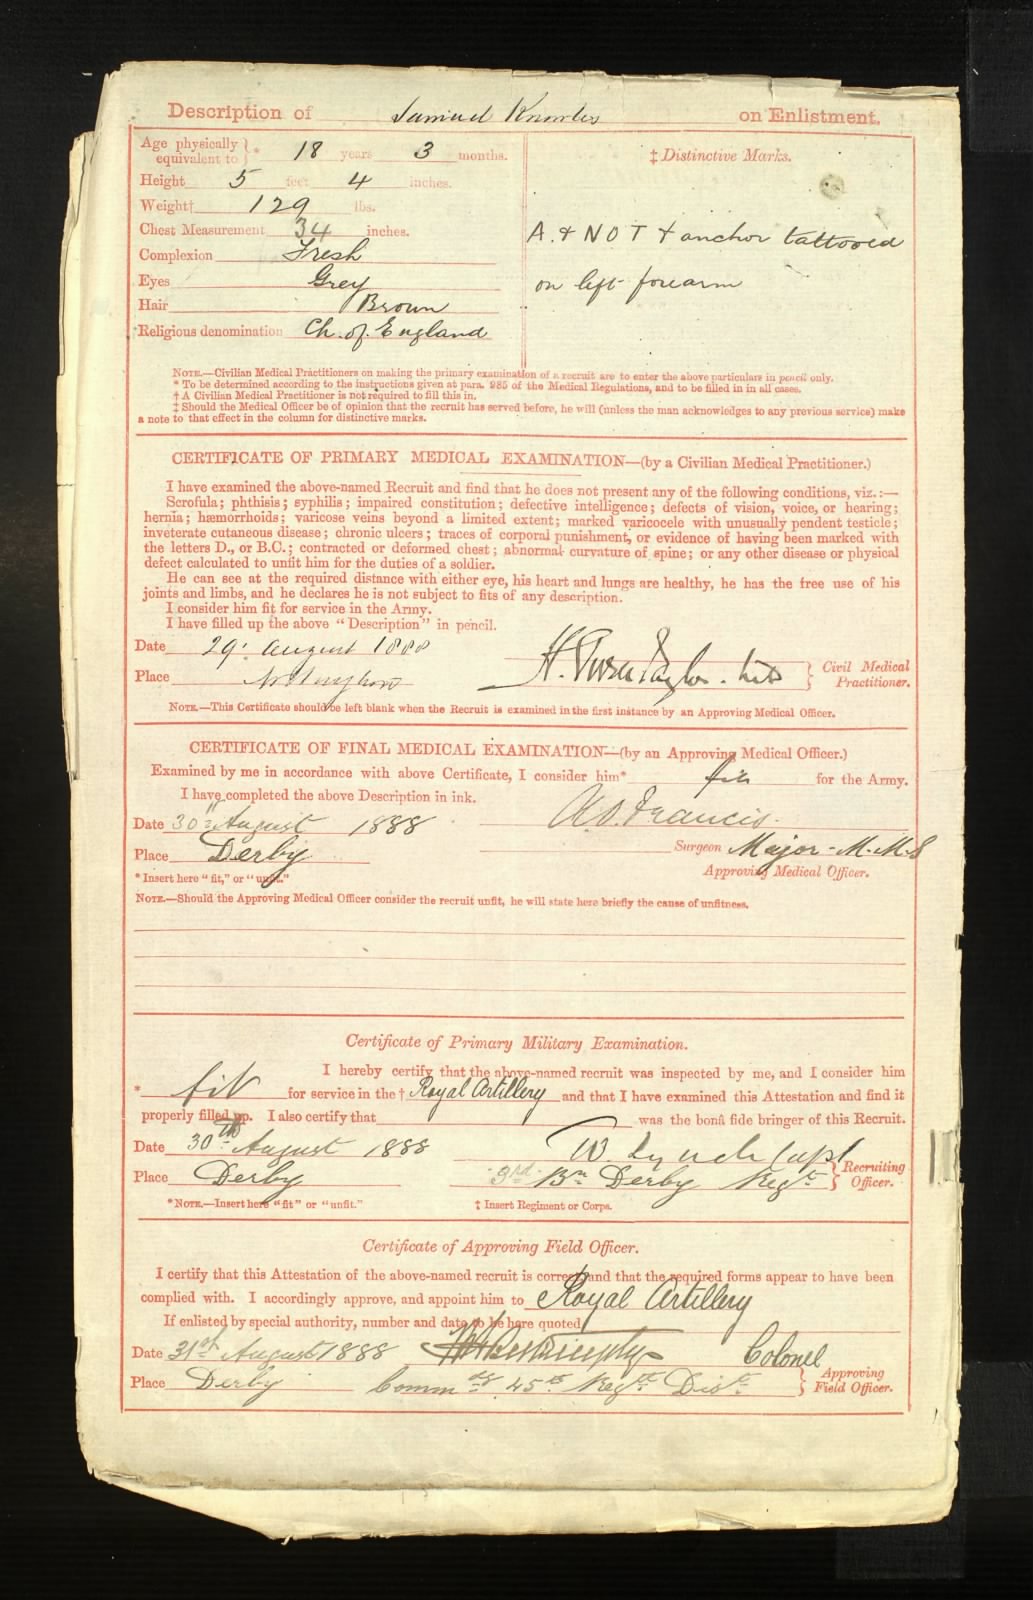 Description of Samuel Knowles on Enlistment.
Age physically equivalent to * 18 years 3 months.
Height 5 feet 4 inches.
Weight† 129 lbs.
Chest Measurement 34 inches.
Complexion Fresh
Eyes Grey
Hair Brown
Religious denomination Ch. of England
‡ Distinctive Marks.
A. + N O T + anchor tattooed
on left forearm
NOTE.—Civilian Medical Practitioners on making the primary examination of a recruit are to enter the above particulars in pencil only.
* To be determined according to the instructions given at para. 985 of the Medical Regulations, and to be filled in in all cases.
† A Civilian Medical Practitioner is not required to fill this in.
‡ Should the Medical Officer be of opinion that the recruit has served before, he will (unless the man acknowledges to any previous service) make
a note to that effect in the column for distinctive marks.
CERTIFICATE OF PRIMARY MEDICAL EXAMINATION—(by a Civilian Medical Practitioner.)
I have examined the above-named Recruit and find that he does not present any of the following conditions, viz.:—
Scrofula; phthisis; syphilis; impaired constitution; defective intelligence; defects of vision, voice, or hearing;
hernia; hæmorrhoids; varicose veins beyond a limited extent; marked varicocele with unusually pendent testicle;
inveterate cutaneous disease; chronic ulcers; traces of corporal punishment, or evidence of having been marked with
the letters D., or B.C.; contracted or deformed chest; abnormal curvature of spine; or any other disease or physical
defect calculated to unfit him for the duties of a soldier.
He can see at the required distance with either eye, his heart and lungs are healthy, he has the free use of his
joints and limbs, and he declares he is not subject to fits of any description.
I consider him fit for service in the Army.
I have filled up the above "Description" in pencil.
Date 29. August 1888
Place Nottingham
H. Taylor. Civil Medical Practitioner.
NOTE.—This Certificate should be left blank when the Recruit is examined in the first instance by an Approving Medical Officer.
CERTIFICATE OF FINAL MEDICAL EXAMINATION—(by an Approving Medical Officer.)
Examined by me in accordance with above Certificate, I consider him* fit for the Army.
I have completed the above Description in ink.
Date 30th August 1888 Francis.
Place Derby Surgeon Major - M.M.S
* Insert here "fit," or "unfit." Approving Medical Officer.
NOTE.—Should the Approving Medical Officer consider the recruit unfit, he will state here briefly the cause of unfitness.
Certificate of Primary Military Examination.
I hereby certify that the above-named recruit was inspected by me, and I consider him
* fit for service in the † Royal Artillery and that I have examined this Attestation and find it
properly filled up. I also certify that was the bonâ fide bringer of this Recruit.
Date 30th August 1888 W. Lynch Capt
Place Derby 3rd Bn Derby Regt Recruiting Officer.
*NOTE.—Insert here "fit" or "unfit." ‡ Insert Regiment or Corps.
Certificate of Approving Field Officer.
I certify that this Attestation of the above-named recruit is correct, and that the required forms appear to have been
complied with. I accordingly approve, and appoint him to Royal Artillery
If enlisted by special authority, number and date to be here quoted
Date 31st August 1888 Colonel
Place Derby Commdg 45th Regtl Dist Approving Field Officer.